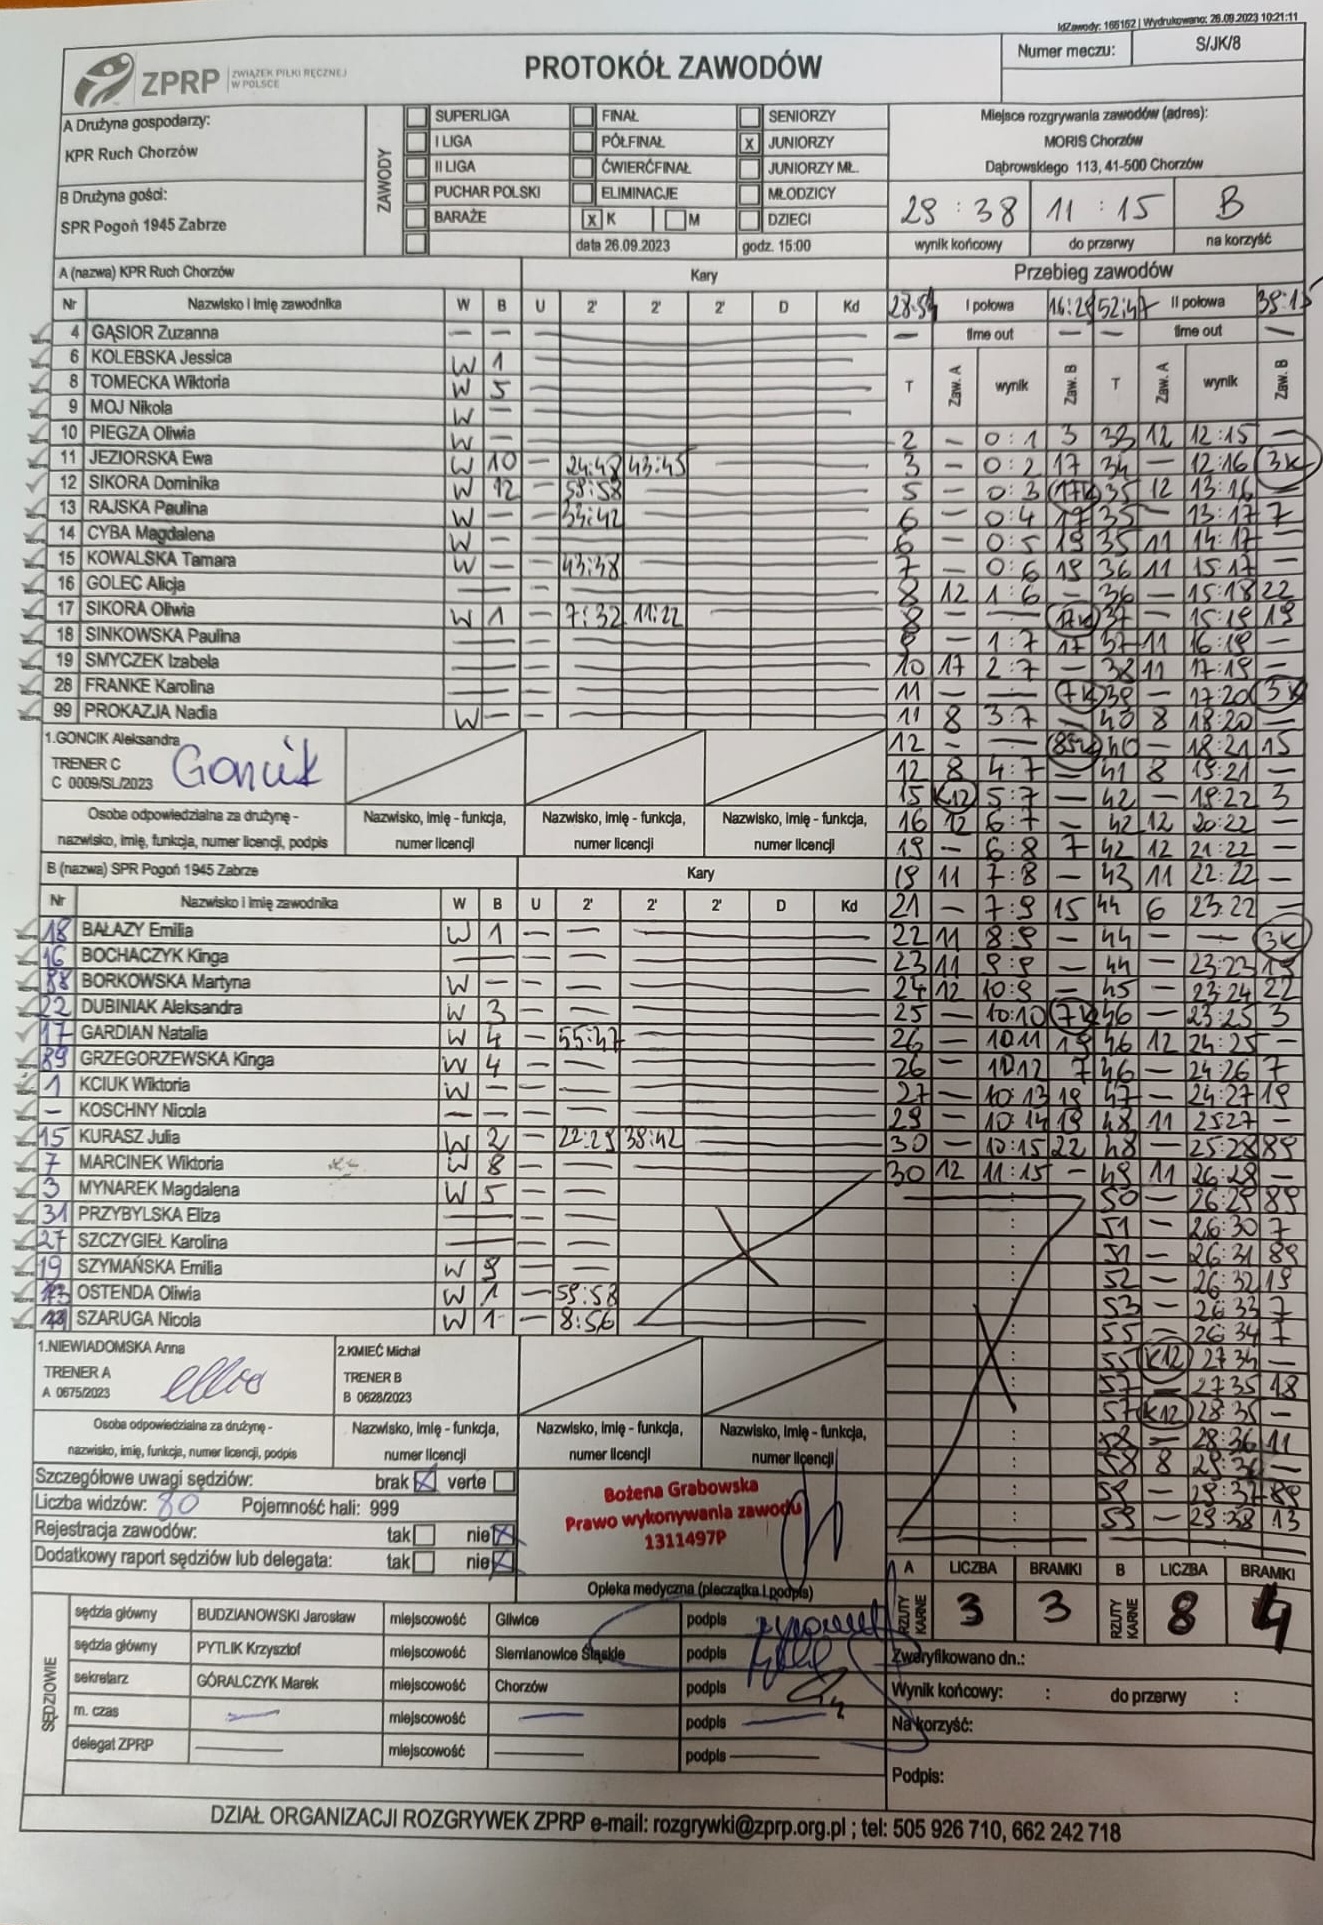 IdZawody: 166162 | Wydrukowano: 26.09.2023 10:21:11
ZPRP ZWIĄZEK PIŁKI RĘCZNEJ W POLSCE
PROTOKÓŁ ZAWODÓW
Numer meczu: S/JK/8
A Drużyna gospodarzy:
KPR Ruch Chorzów
B Drużyna gości:
SPR Pogoń 1945 Zabrze
ZAWODY
SUPERLIGA FINAŁ SENIORZY
I LIGA PÓŁFINAŁ x JUNIORZY
II LIGA ĆWIERĆFINAŁ JUNIORZY MŁ.
PUCHAR POLSKI ELIMINACJE MŁODZICY
BARAŻE x K M DZIECI
data 26.09.2023 godz. 15:00
Miejsce rozgrywania zawodów (adres):
MORIS Chorzów
Dąbrowskiego 113, 41-500 Chorzów
29 : 38 11 : 15 B
wynik końcowy do przerwy na korzyść
A (nazwa) KPR Ruch Chorzów Kary
Nr Nazwisko i imię zawodnika W B U 2' 2' 2' D Kd
4 GĄSIOR Zuzanna — —
6 KOLEBSKA Jessica W 1
8 TOMECKA Wiktoria W 5
9 MOJ Nikola W —
10 PIEGZA Oliwia W —
11 JEZIORSKA Ewa W 10 — 24:48 43:45
12 SIKORA Dominika W 12 — 59:58
13 RAJSKA Paulina W — — 33:42
14 CYBA Magdalena W —
15 KOWALSKA Tamara W — — 43:38
16 GOLEC Alicja
17 SIKORA Oliwia W 1 — 7:32 11:22
18 SINKOWSKA Paulina
19 SMYCZEK Izabela
28 FRANKE Karolina
99 PROKAZJA Nadia W —
1.GONCIK Aleksandra
TRENER C
C 0009/SL/2023
Goncik
Osoba odpowiedzialna za drużynę - nazwisko, imię, funkcja, numer licencji, podpis
Nazwisko, imię - funkcja, numer licencji
Nazwisko, imię - funkcja, numer licencji
Nazwisko, imię - funkcja, numer licencji
B (nazwa) SPR Pogoń 1945 Zabrze Kary
Nr Nazwisko i imię zawodnika W B U 2' 2' 2' D Kd
18 BAŁAZY Emilia W 1 — —
16 BOCHACZYK Kinga
88 BORKOWSKA Martyna W — — —
22 DUBINIAK Aleksandra W 3 — —
17 GARDIAN Natalia W 4 — 55:47
89 GRZEGORZEWSKA Kinga W 4 — —
1 KCIUK Wiktoria W — — —
— KOSCHNY Nicola — — — —
15 KURASZ Julia W 2 — 22:29 38:42
7 MARCINEK Wiktoria W 8 — —
3 MYNAREK Magdalena W 5 — —
31 PRZYBYLSKA Eliza
27 SZCZYGIEŁ Karolina
19 SZYMAŃSKA Emilia W 9 — —
OSTENDA Oliwia W 1 — 59:58
SZARUGA Nicola W 1 — 8:56
1.NIEWIADOMSKA Anna
TRENER A
A 0675/2023
2.KMIEĆ Michał
TRENER B
B 0628/2023
Osoba odpowiedzialna za drużynę - nazwisko, imię, funkcja, numer licencji, podpis
Nazwisko, imię - funkcja, numer licencji
Nazwisko, imię - funkcja, numer licencji
Nazwisko, imię - funkcja, numer licencji
Szczegółowe uwagi sędziów: brak x verte
Liczba widzów: 80 Pojemność hali: 999
Rejestracja zawodów: tak nie x
Dodatkowy raport sędziów lub delegata: tak nie x
Bożena Grabowska
Prawo wykonywania zawodu
1311497P
Opieka medyczna (pieczątka i podpis)
SĘDZIOWIE
sędzia główny BUDZIANOWSKI Jarosław miejscowość Gliwice podpis
sędzia główny PYTLIK Krzysztof miejscowość Siemianowice Śląskie podpis
sekretarz GÓRALCZYK Marek miejscowość Chorzów podpis
m. czas — miejscowość — podpis —
delegat ZPRP — miejscowość — podpis —
Przebieg zawodów
28:54 I połowa 16:29 52:47 II połowa 39:15
— time out — — time out —
T Zaw. A wynik Zaw. B T Zaw. A wynik Zaw. B
2 — 0:1 3 33 12 12:15 —
3 — 0:2 17 34 — 12:16 3K
5 — 0:3 17K 35 12 13:16 —
6 — 0:4 17 35 — 13:17 7
6 — 0:5 19 35 11 14:17 —
7 — 0:6 19 36 11 15:17 —
8 12 1:6 — 36 — 15:18 22
8 — — 17K 37 — 15:19 19
9 — 1:7 17 37 11 16:19 —
10 17 2:7 — 38 11 17:19 —
11 — — 7K 39 — 17:20 3K
11 8 3:7 — 40 8 18:20 —
12 — — 89K 40 — 18:21 15
12 8 4:7 — 41 8 19:21 —
15 K12 5:7 — 42 — 19:22 3
16 12 6:7 — 42 12 20:22 —
19 — 6:8 7 42 12 21:22 —
19 11 7:8 — 43 11 22:22 —
21 — 7:9 15 44 6 23:22 —
22 11 8:9 — 44 — — 3K
23 11 9:9 — 44 — 23:23 19
24 12 10:9 — 45 — 23:24 22
25 — 10:10 7K 46 — 23:25 3
26 — 10:11 19 46 12 24:25 —
26 — 10:12 7 46 — 24:26 7
27 — 10:13 19 47 — 24:27 19
29 — 10:14 19 48 11 25:27 —
30 — 10:15 22 48 — 25:28 89
30 12 11:15 — 49 11 26:28 —
50 — 26:29 89
51 — 26:30 7
51 — 26:31 89
52 — 26:32 19
53 — 26:33 7
55 — 26:34 7
55 K12 27:34 —
57 — 27:35 18
57 K12 28:35 —
58 — 28:36 11
58 8 29:36 —
59 — 29:37 89
59 — 29:38 13
A RZUTY KARNE LICZBA 3 BRAMKI 3
B RZUTY KARNE LICZBA 8 BRAMKI 4
Zweryfikowano dn.:
Wynik końcowy: : do przerwy :
Na korzyść:
Podpis:
DZIAŁ ORGANIZACJI ROZGRYWEK ZPRP e-mail: rozgrywki@zprp.org.pl ; tel: 505 926 710, 662 242 718